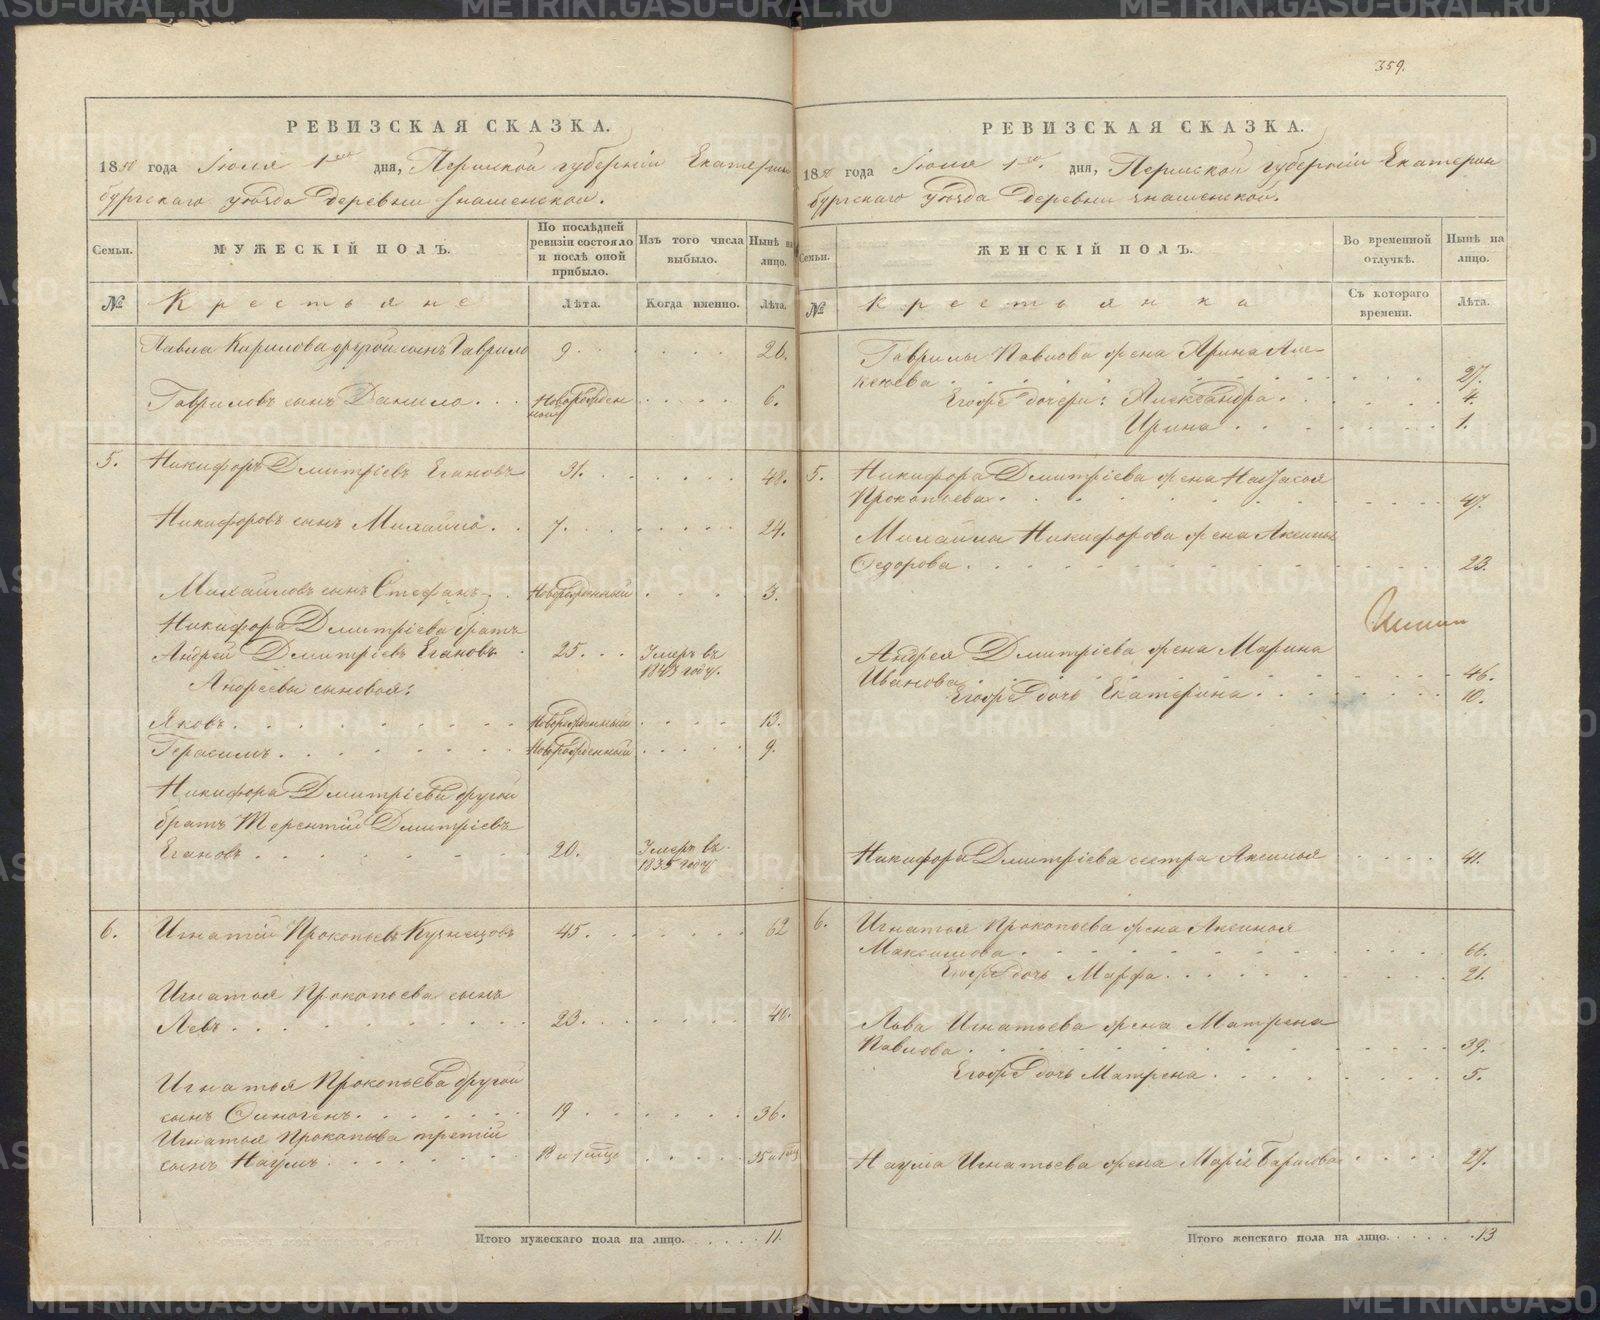 359.
РЕВИЗСКАЯ СКАЗКА.
1850 года Июня 1го дня, Пермской губернiи Екатерин
бургскаго уѣзда деревни
Семьи.
МУЖЕСКIЙ ПОЛЪ.
По послѣдней ревизiи состояло и послѣ оной прибыло.
Изъ того числа выбыло.
Нынѣ на лицо.
№
Крестьяне
Лѣта.
Когда именно.
Лѣта.
Павла Кирилова другой сынъ Гаврило 9. 26.
Гавриловъ сынъ Данило . . . Новорожден 6.
ный
5. Никифоръ Дмитрiевъ Егановъ 31. 48.
Никифоровъ сынъ Михайло . . 7. 24.
Михайловъ сынъ Стефанъ . Новорожденный 3.
Никифора Дмитрiева братъ
Андрей Дмитрiевъ Егановъ . 25. . . Умеръ въ
1843 году.
Андреевы сыновья:
Яковъ . . . Новорожденный 13.
Герасимъ . . . Новорожденный 9.
Никифора Дмитрiева другой
братъ Терентiй Дмитрiевъ
Егановъ . . . 20. Умеръ въ
1835 году.
6. Игнатiй Прокопьевъ Кузнецовъ 45. 62
Игнатья Прокопьева сынъ
Левъ . . . 23. 40.
Игнатья Прокопьева другой
сынъ Финогенъ . . . 19 36.
Игнатья Прокопьева третiй
сынъ Наумъ . . . 18 35
Итого мужескаго пола на лицо. . . . . 11.
РЕВИЗСКАЯ СКАЗКА.
1850 года Июня 1го дня, Пермской губернiи Екатерин
бургскаго уѣзда деревни
Семьи.
ЖЕНСКIЙ ПОЛЪ.
Во временной отлучкѣ.
Нынѣ на лицо.
№
Крестьянка
Съ котораго времени.
Лѣта.
Гаврилы Павлова жена Арина Але-
ксеева . . . 27.
Егожъ дочери: Александра . . . 4.
Ирина . . . 1.
5. Никифора Дмитрiева жена Настасья
Прокопьева . . . 47.
Михайлы Никифорова жена Аксинья
Федорова . . . 23.
Андрея Дмитрiева жена Марина
Иванова . . . 46.
Егожъ дочь Екатерина . . . 10.
Никифора Дмитрiева сестра Аксинья . . . 41.
6. Игнатья Прокопьева жена Аксинья
Максимова . . . 66.
Егожъ дочь Марфа . . . 21.
Льва Игнатьева жена Матрена
Павлова . . . 39.
Егожъ дочь Матрена . . . 5.
Наума Игнатьева жена Марiя Борисова . . . 27.
Итого женскаго пола на лицо. . . . . 13
METRIKI.GASO-URAL.RU